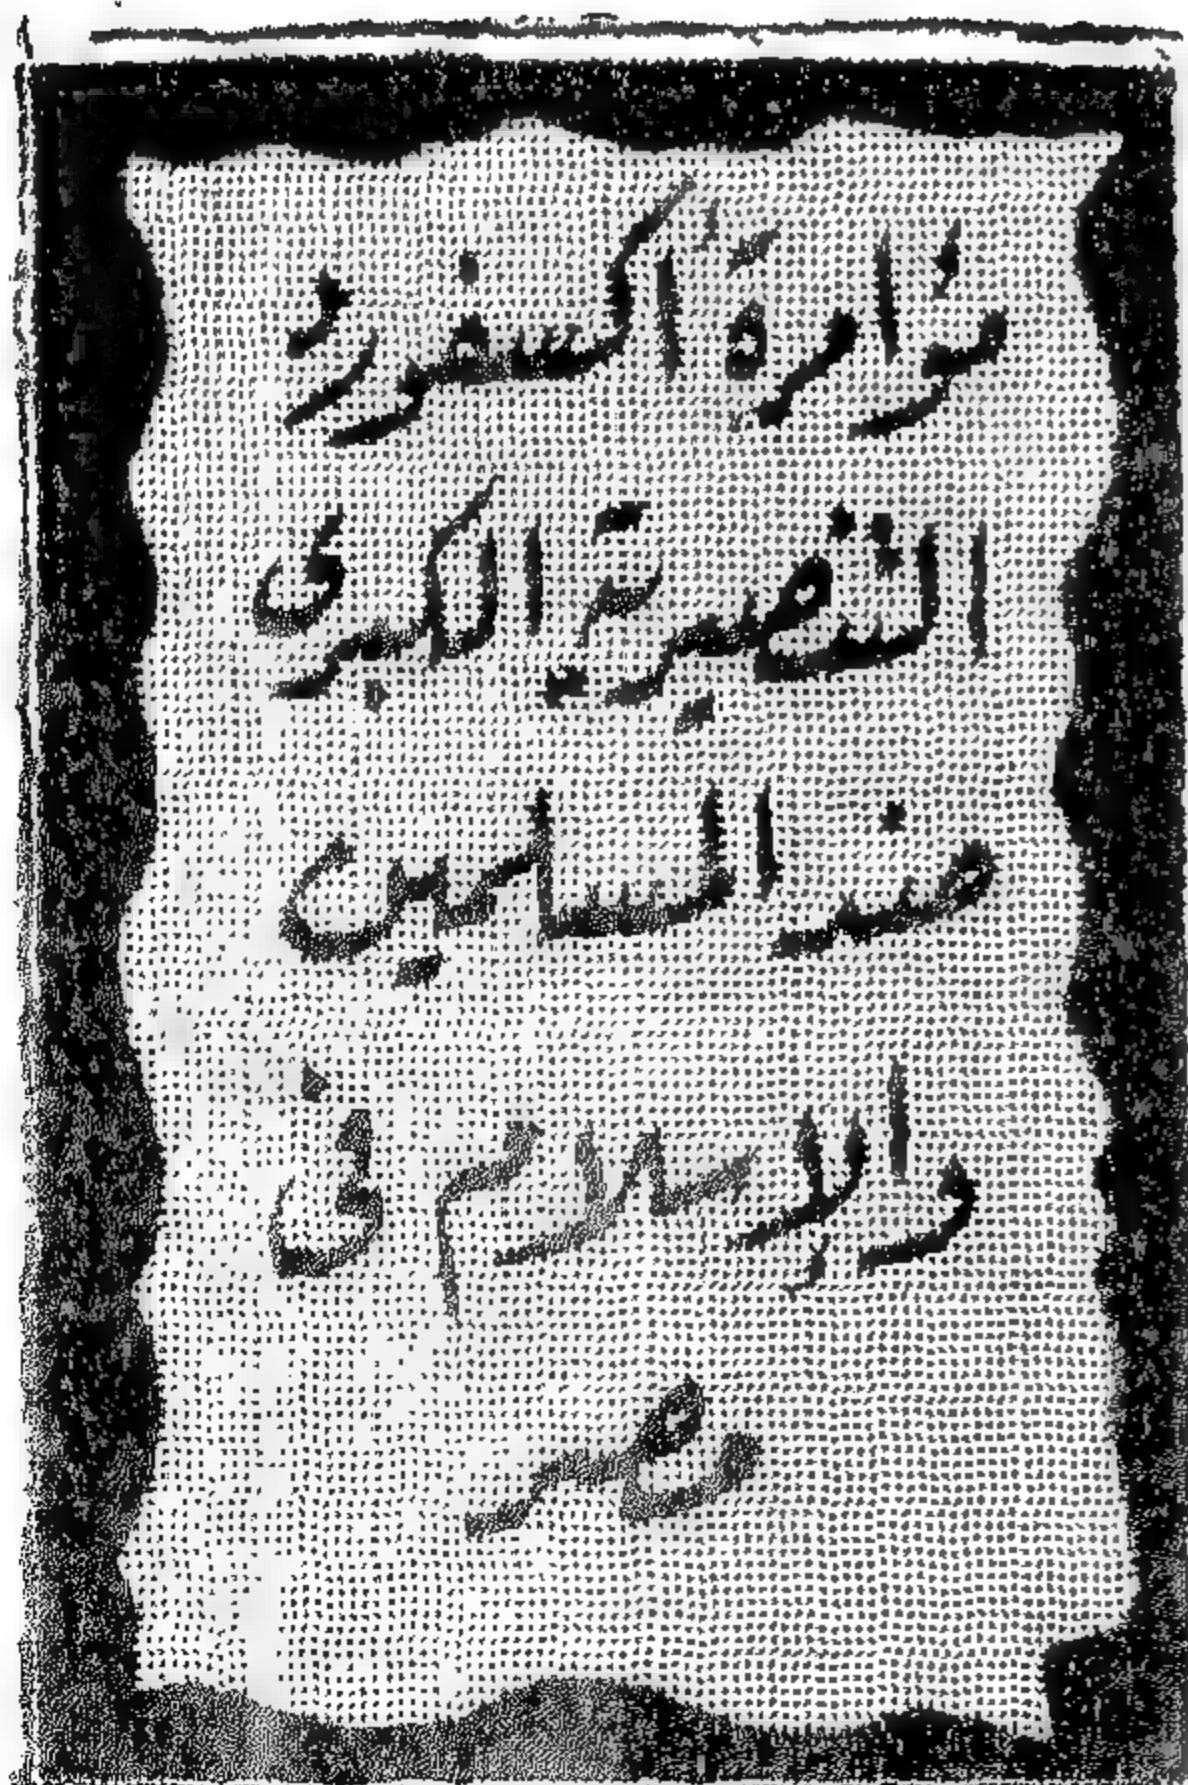 مؤامرة اكسفورد
التنصيرية الكبرى
ضد المسلمين
والإسلام في
مصر